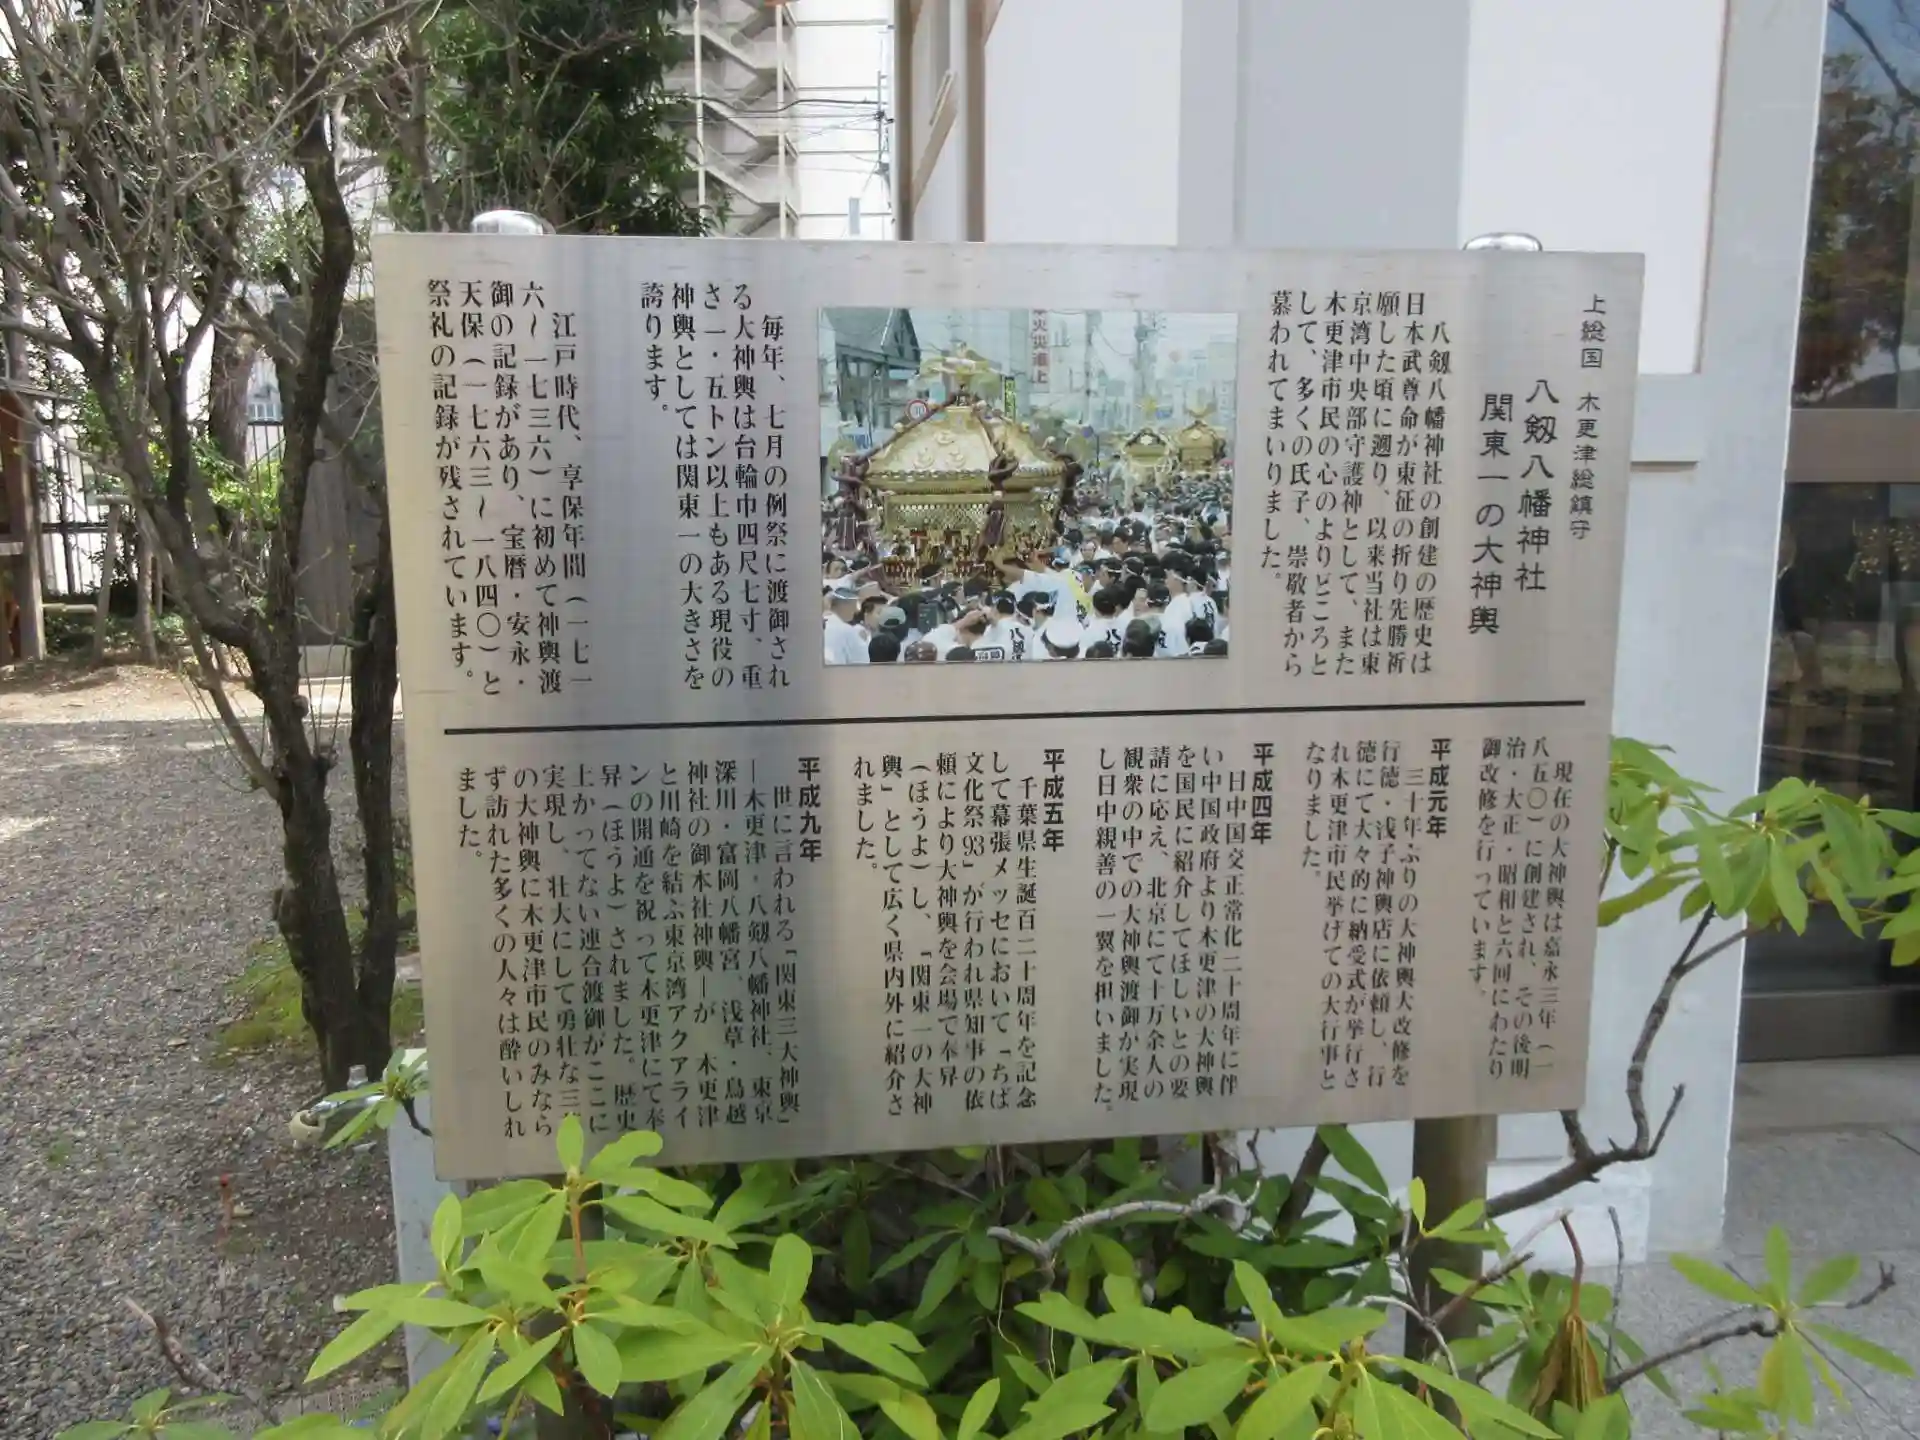 上総国 木更津総鎮守
八剱八幡神社
関東一の大神輿
八剱八幡神社の創建の歴史は
日本武尊命が東征の折り先勝祈
願した頃に遡り、以来当社は東
京湾中央部守護神として、また
木更津市民の心のよりどころと
して、多くの氏子、崇敬者から
慕われてまいりました。
毎年、七月の例祭に渡御され
る大神輿は台輪巾四尺七寸、重
さ一・五トン以上もある現役の
神輿としては関東一の大きさを
誇ります。
江戸時代、享保年間(一七一
六〜一七三六)に初めて神輿渡
御の記録があり、宝暦・安永・
天保(一七六三〜一八四〇)と
祭礼の記録が残されています。
現在の大神輿は嘉永三年(一
八五〇)に創建され、その後明
治・大正・昭和と六回にわたり
御改修を行っています。
平成元年
三十年ぶりの大神輿大改修を
行徳・浅子神輿店に依頼し、行
徳にて大々的に納受式が挙行さ
れ木更津市民挙げての大行事と
なりました。
平成四年
日中国交正常化二十周年に伴
い中国政府より木更津の大神輿
を国民に紹介してほしいとの要
請に応え、北京にて十万余人の
観衆の中での大神輿渡御が実現
し日中親善の一翼を担いました。
平成五年
千葉県生誕百二十周年を記念
して幕張メッセにおいて「ちば
文化祭93」が行われ県知事の依
頼により大神輿を会場で奉昇
(ほうよ)し、「関東一の大神
輿」として広く県内外に紹介さ
れました。
平成九年
世に言われる「関東三大神輿」
―木更津・八剱八幡神社、東京
深川・富岡八幡宮、浅草・鳥越
神社の御本社神輿―が、木更津
と川崎を結ぶ東京湾アクアライ
ンの開通を祝って木更津にて奉
昇(ほうよ)されました。歴史
上かつてない連合渡御がここに
実現し、壮大にして勇壮な三
の大神輿に木更津市民のみなら
ず訪れた多くの人々は酔いしれ
ました。